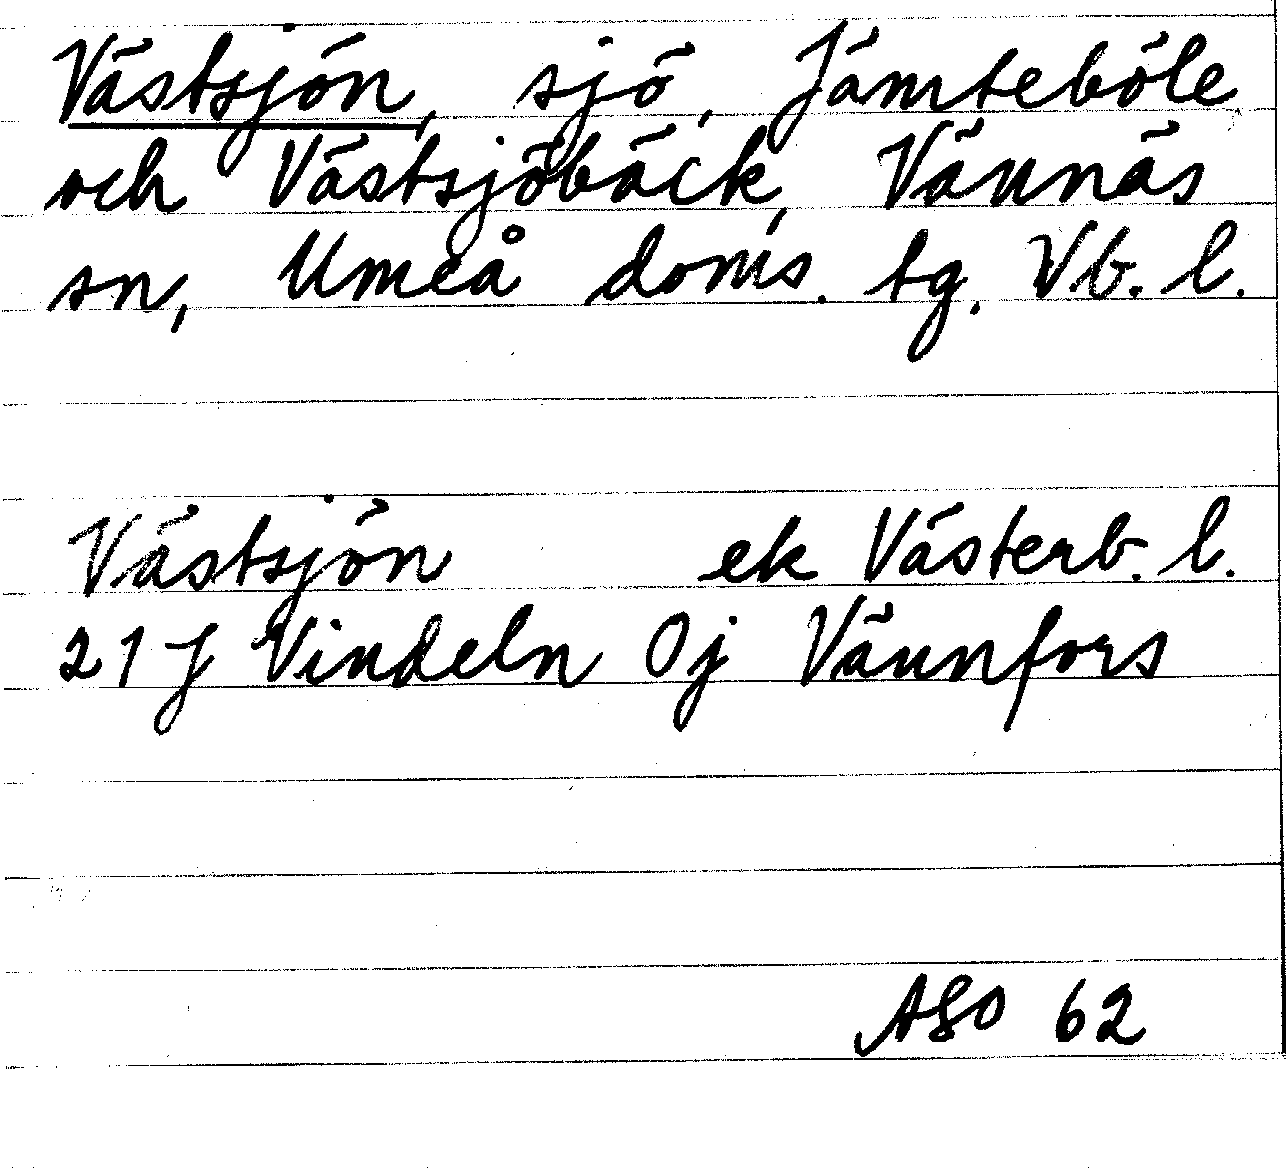 Västsjön, sjö, Jämteböle
och Västsjöbäck, Vännäs
sn, Umeå doms. tg. Vb. l.
Västsjön ek Västerb. l.
21 J Vindeln 0j Vännfors
ASO 62